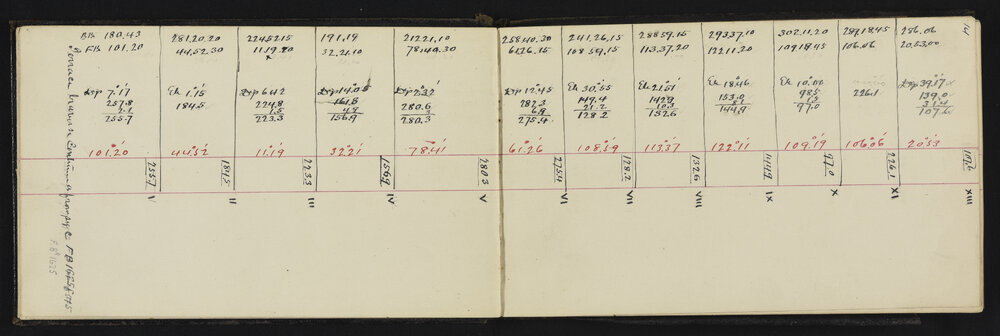 BB 180.43 281.20.20 224.52.15 191.19 212.21.10 258.40.30 241.26.15 288.59.15 293.37.10 302.11.20 287.18.45 286.06 14
FB 101.20 44.52.30 11.19.20 32.21.10 78.40.30 61.26.15 108.59.15 113.37.20 122.11.30 109.18.45 106.06 20.53.00
x
Dep 7°17' El 1°15' Dep 6°42 Dep 14°05 Dep 2°32' Dep 12°45 El 30°55 El 21°51' El 18°46 El 10°00 Dep 39°17'
257.8 184.5 224.8 161.5 280.6 282.3 149.4 142.9 153.0 98.5 226.1 139.0
2.1 1.5 4.8 .2 6.9 21.2 10.3 8.1 1.5 31.4
255.7 223.3 156.9 280.3 275.4 128.2 132.6 144.9 97.0 107.6
101°20 44°52' 11°19 32°21' 78°41' 61°26 108°59' 113°37 122°11' 109°19' 106°06' 20°53'
255.7 184.5 223.3 156.9 280.3 275.4 128.2 132.6 144.9 97.0 226.1 107.6
I II III IV V VI VII VIII IX X XI XIII
FB 1625